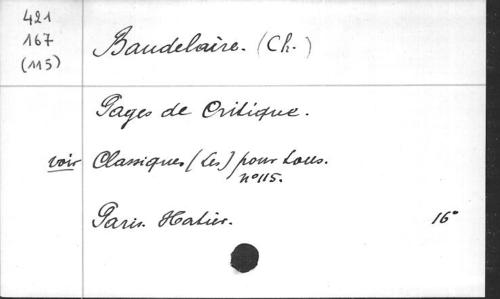 421
167
(115)
Baudelaire. (Ch.)
Pages de Critique.
voir Classiques (Les) pour tous.
n° 115.
Paris. Hatier. 16°